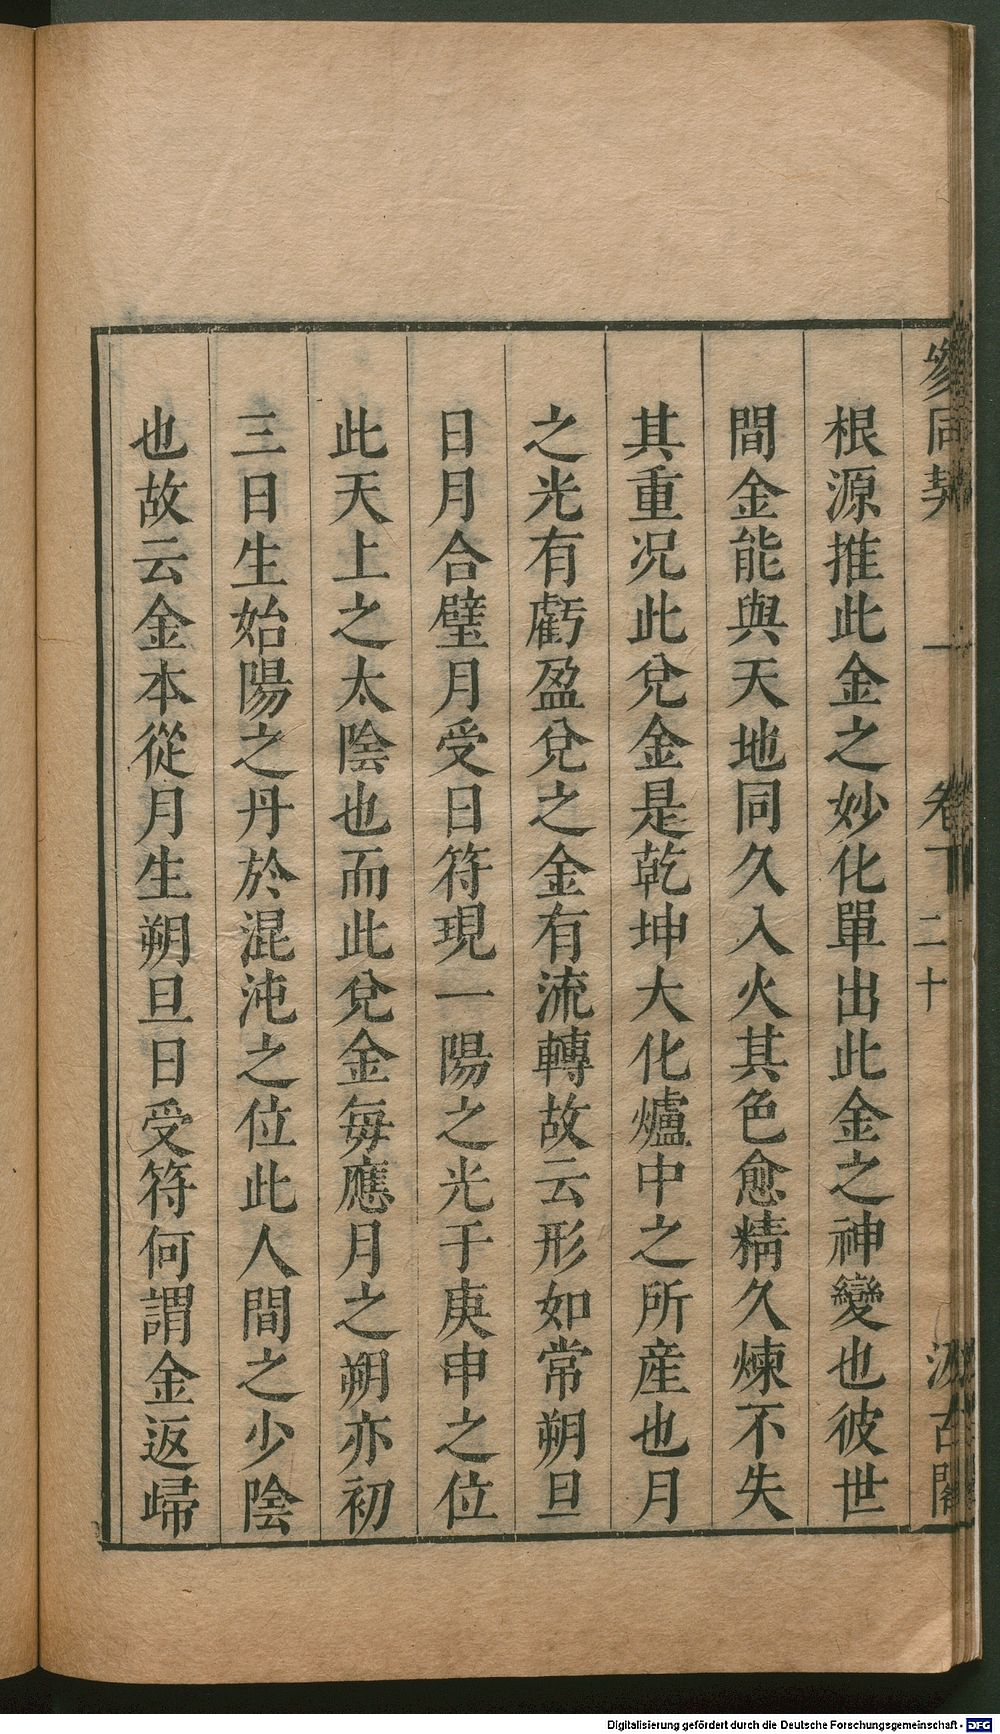 參同契 一 卷下 二十 汲古閣
根源推此金之妙化單出此金之神變也彼世
間金能與天地同久入火其色愈精久煉不失
其重况此兌金是乾坤大化爐中之所産也月
之光有虧盈兌之金有流轉故云形如常朔旦
日月合璧月受日符現一陽之光于庚申之位
此天上之太陰也而此兌金毎應月之朔亦初
三日生始陽之丹於混沌之位此人間之少陰
也故云金本從月生朔旦日受符何謂金返歸
Digitalisierung gefördert durch die Deutsche Forschungsgemeinschaft - DFG